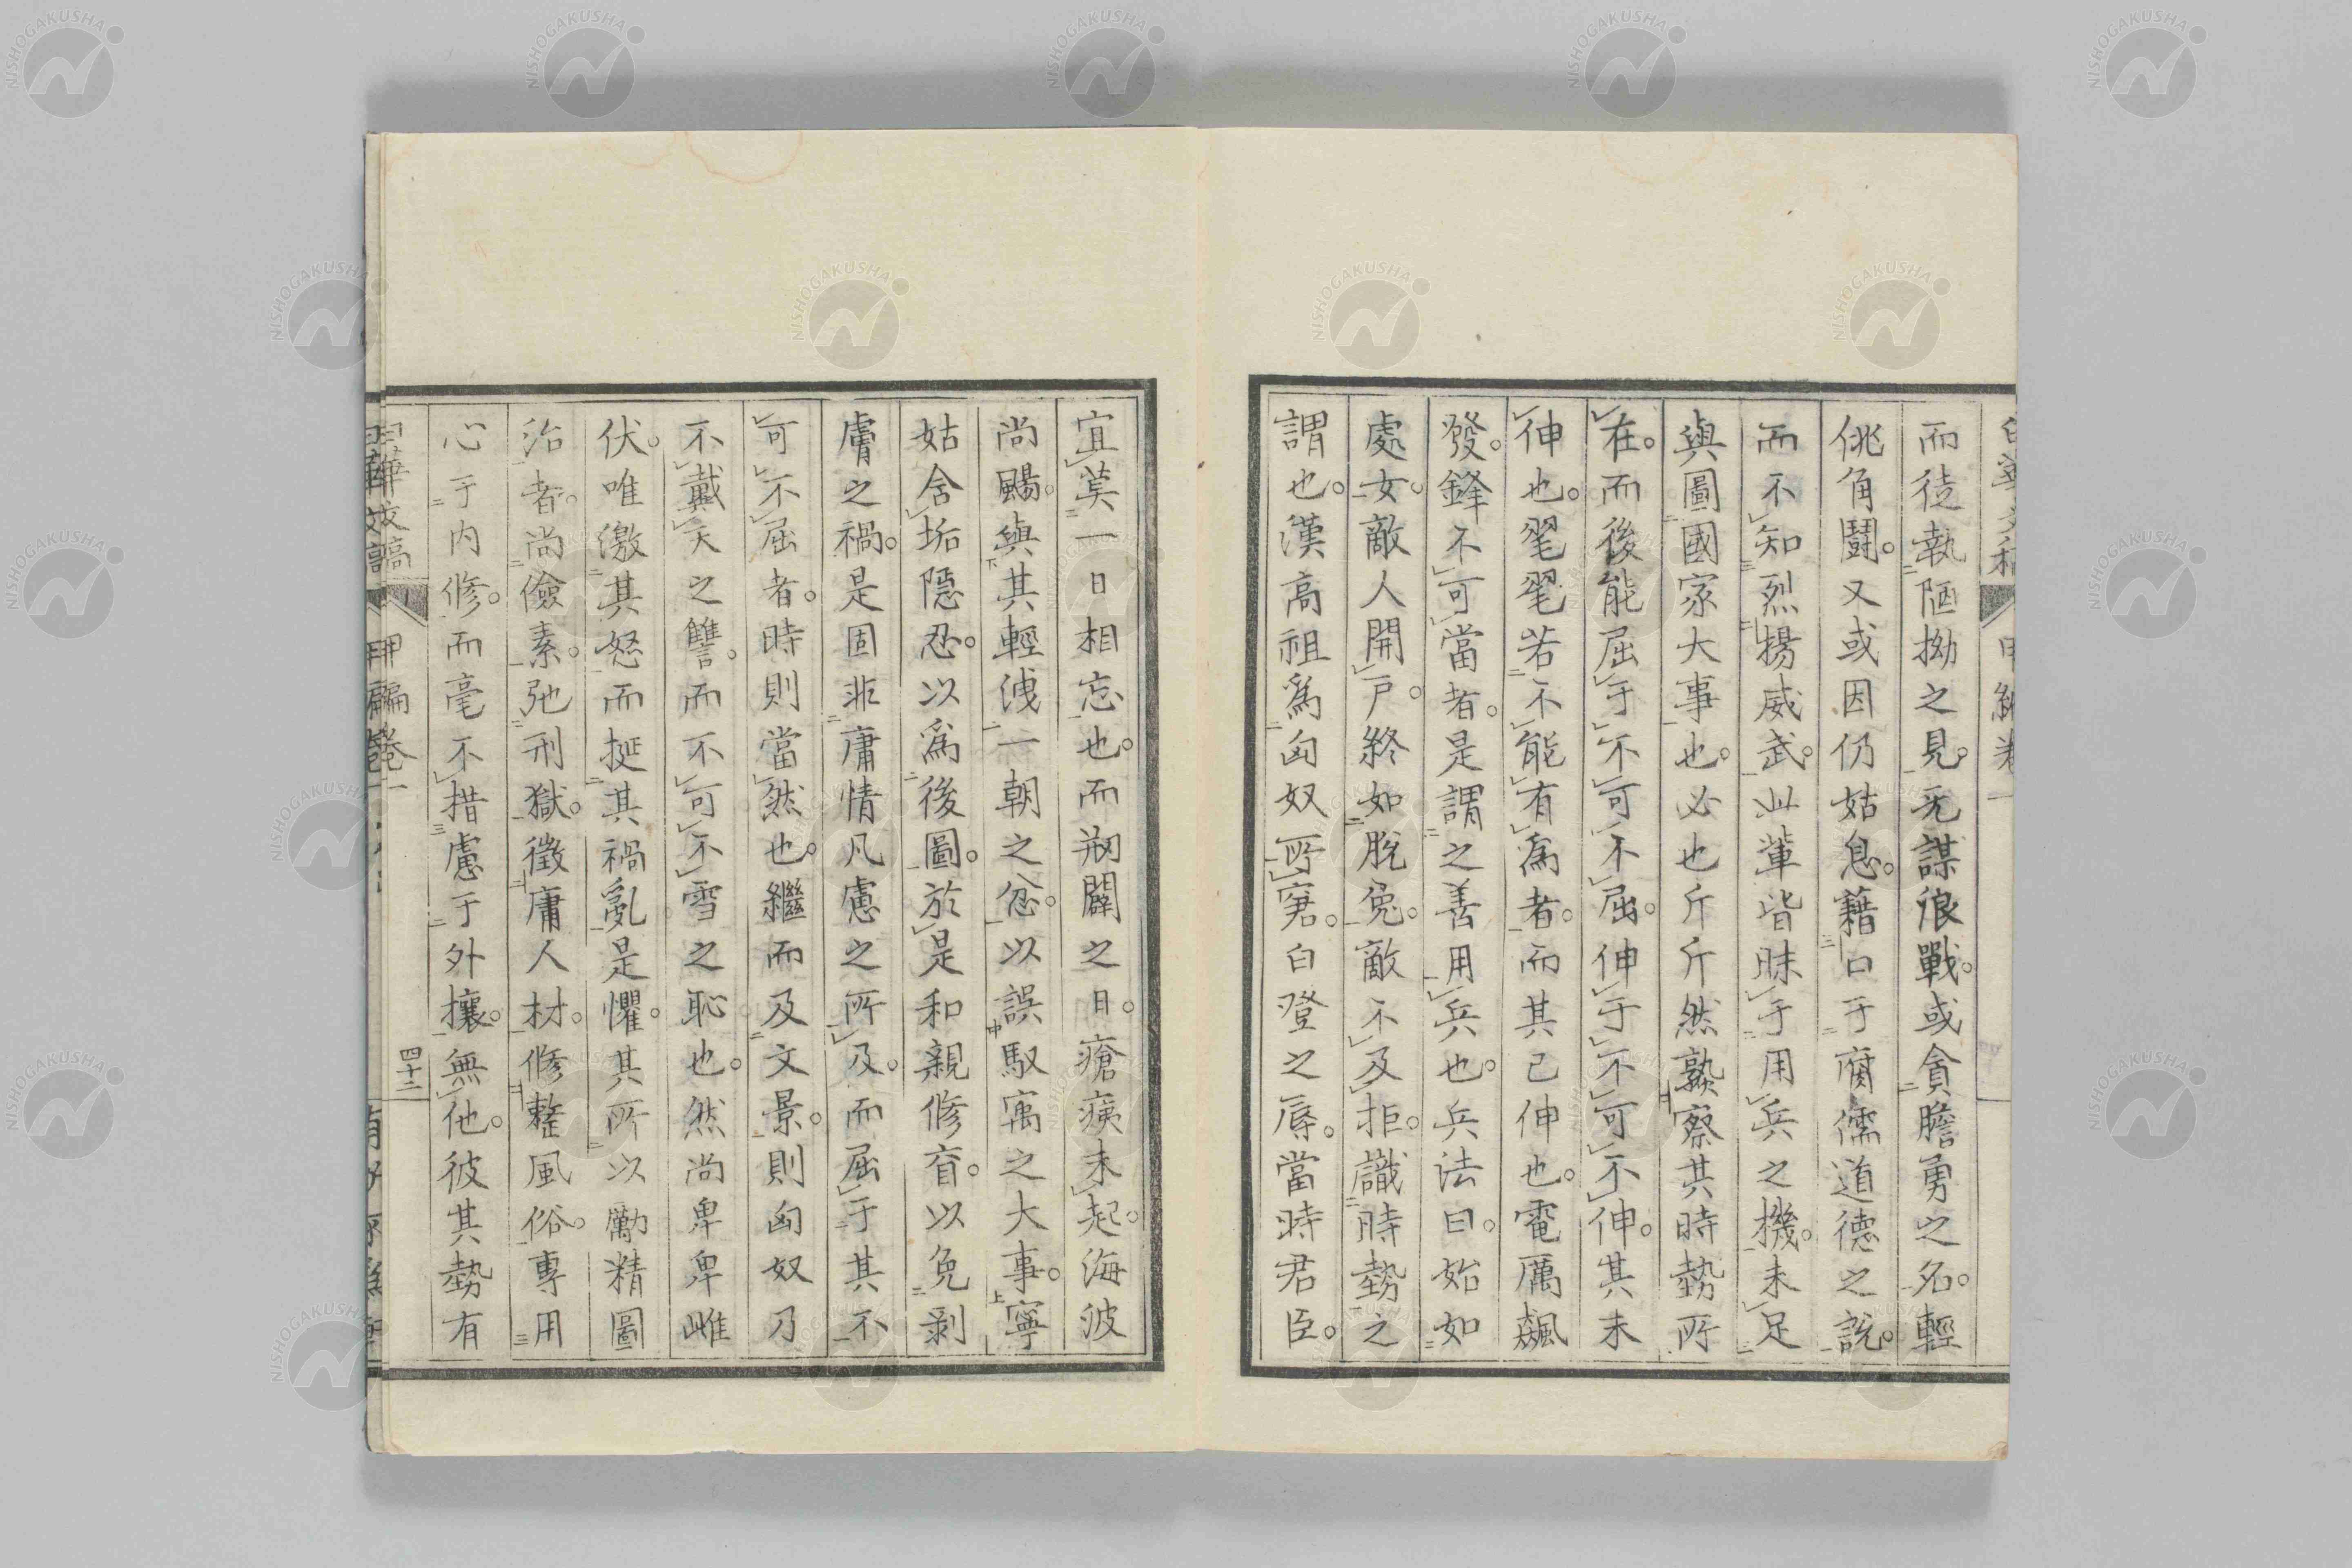 而徒執陋拗之見。无謀浪戰。或貪膽勇之名。輕
佻角鬪。又或因仍姑息。藉口于腐儒道德之說。
而不知烈揚威武。此輩皆昧于用兵之機。未足
與圖國家大事也。必也斤斤然熟察其時勢所
在。而後能屈于不可不屈。伸于不可不伸。其未
伸也。毣毣若不能有爲者。而其已伸也。電厲飆
發。鋒不可當者。是謂之善用兵也。兵法曰。始如
處女。敵人開戶。終如脫兔。敵不及拒。識時勢之
謂也。漢高祖爲匈奴所窘。白登之辱。當時君臣。
宜莫一日相忘也。而剏闢之日。瘡痍未起。海波
尚颺。與其輕洩一朝之忿。以誤馭寓之大事。寧
姑含垢隱忍。以爲後圖。於是和親修睿。以免剥
膚之禍。是固非庸情凡慮之所及。而屈于其不
可不屈者。時則當然也。繼而及文景。則匈奴乃
不戴天之讐。而不可不雪之恥也。然尚卑卑雌
伏。唯激其怒而挻其禍亂是懼。其所以勵精圖
治者。尚儉素。弛刑獄。徵庸人材。修整風俗。專用
心于内修。而毫不措慮于外攘。無他。彼其勢有
白華文稿
甲編卷一
四十二
NISHOGAKUSHA